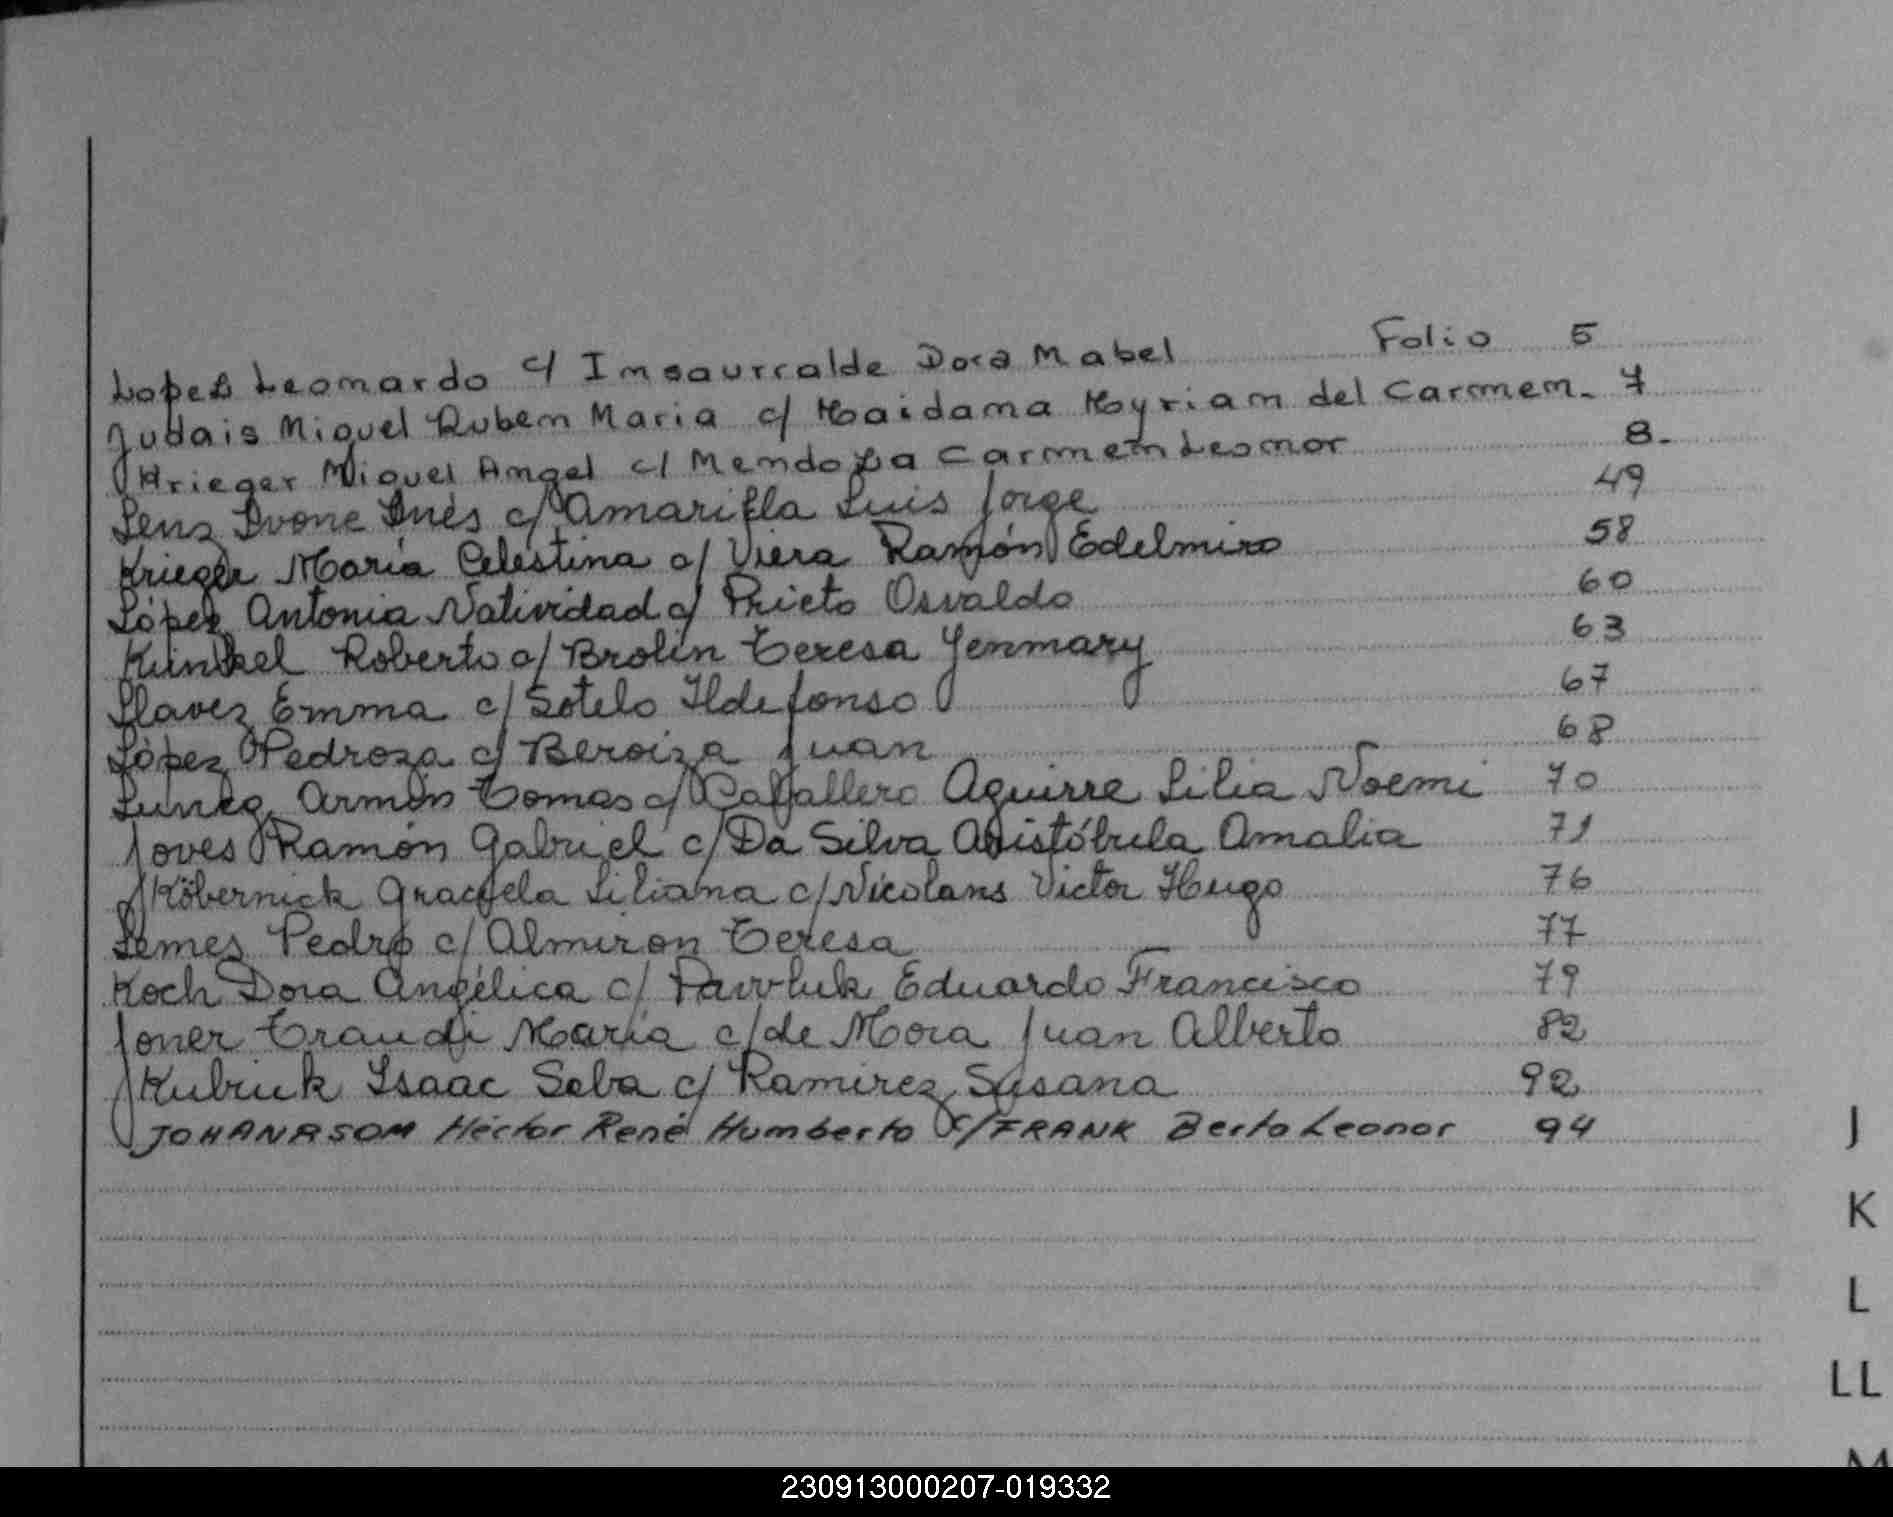 Lopez Leonardo c/ Insaurralde Dora Mabel Folio 5
Judais Miguel Ruben Maria c/ Haidama Myriam del Carmen. 7
Krieger Miguel Angel c/ Mendoza Carmen Leonor 8.
Lenz Ivone Inés c/ Amarilla Luis Jorge 49
Krieger María Celestina c/ Viera Ramón Edelmiro 58
López Antonia Natividad c/ Prieto Osvaldo 60
Kunkel Roberto c/ Brolin Teresa Yenmary 63
Llavez Emma c/ Sotelo Ildefonso 67
López Pedroza c/ Beroiza Juan 68
Armin Tomas c/ Caballero Aguirre Lilia Noemi 70
Joves Ramón Gabriel c/ Da Silva Aristóbula Amalia 71
Köbernick Graciela Liliana c/ Nicolans Victor Hugo 76
Lemes Pedro c/ Almiron Teresa 77
Koch Dora Angélica c/ Pawluk Eduardo Francisco 79
Joner Traudi María c/ de Mora Juan Alberto 82
Kubriuk Isaac Seba c/ Ramirez Susana 92
JOHANASOM Héctor René Humberto c/ FRANK Berta Leonor 94
J
K
L
LL
M
230913000207-019332